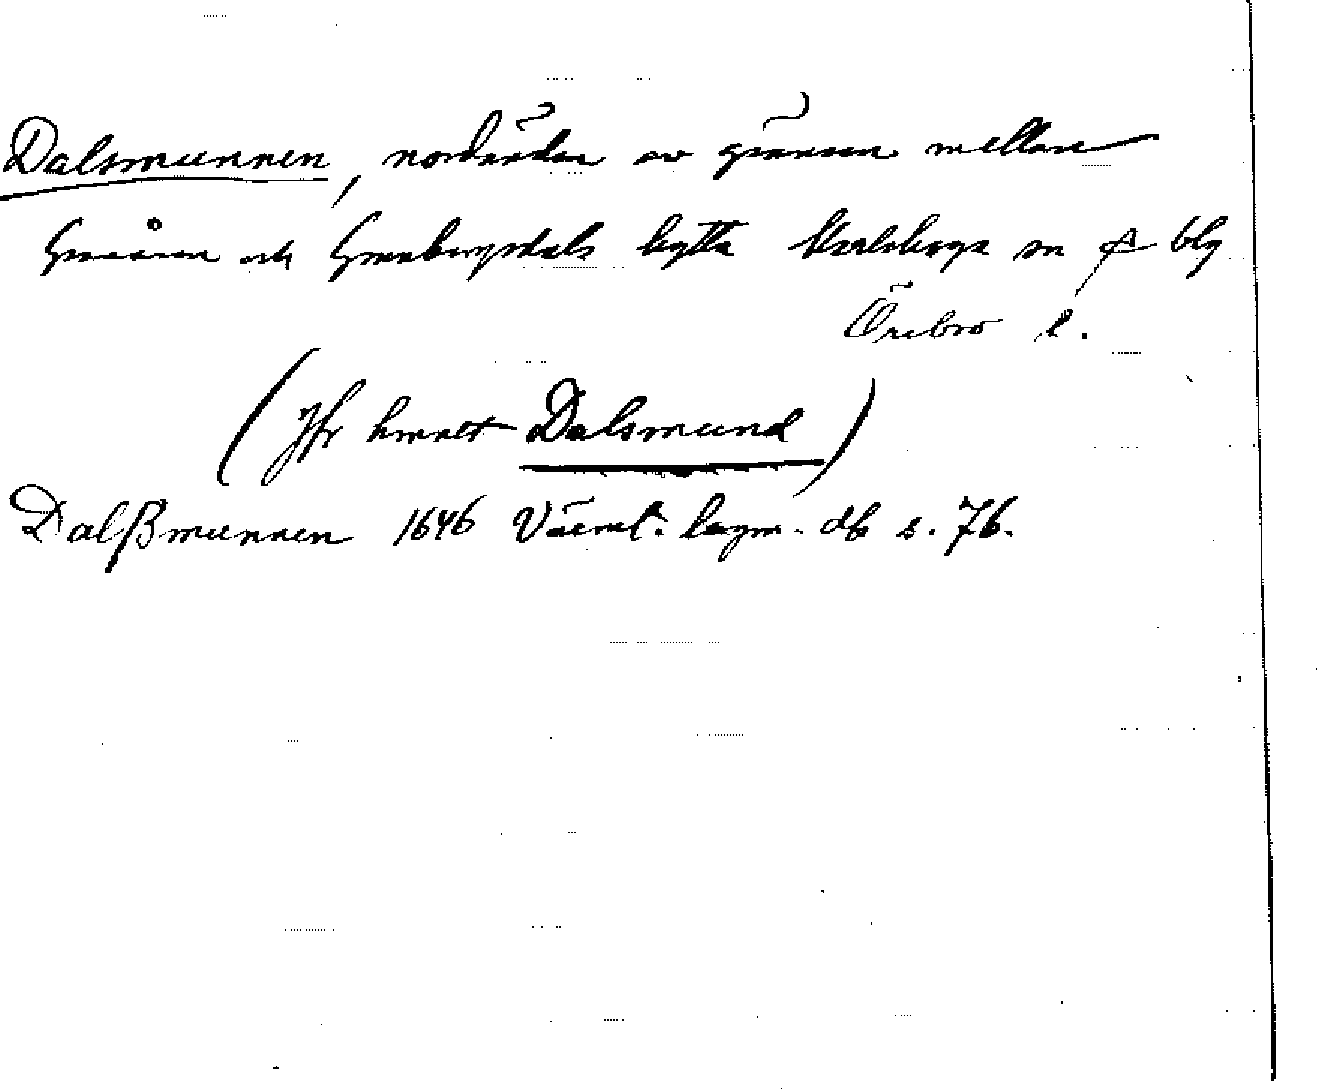 Dalsmunnen, nordändan av gränsen mellan
och Grenbergsdals hytta Karlskoga sn blg
Örebro l.
(Jfr hmnet Dalsmund)
Dalßmunnen 1646 Värml. lagm. db s. 76.